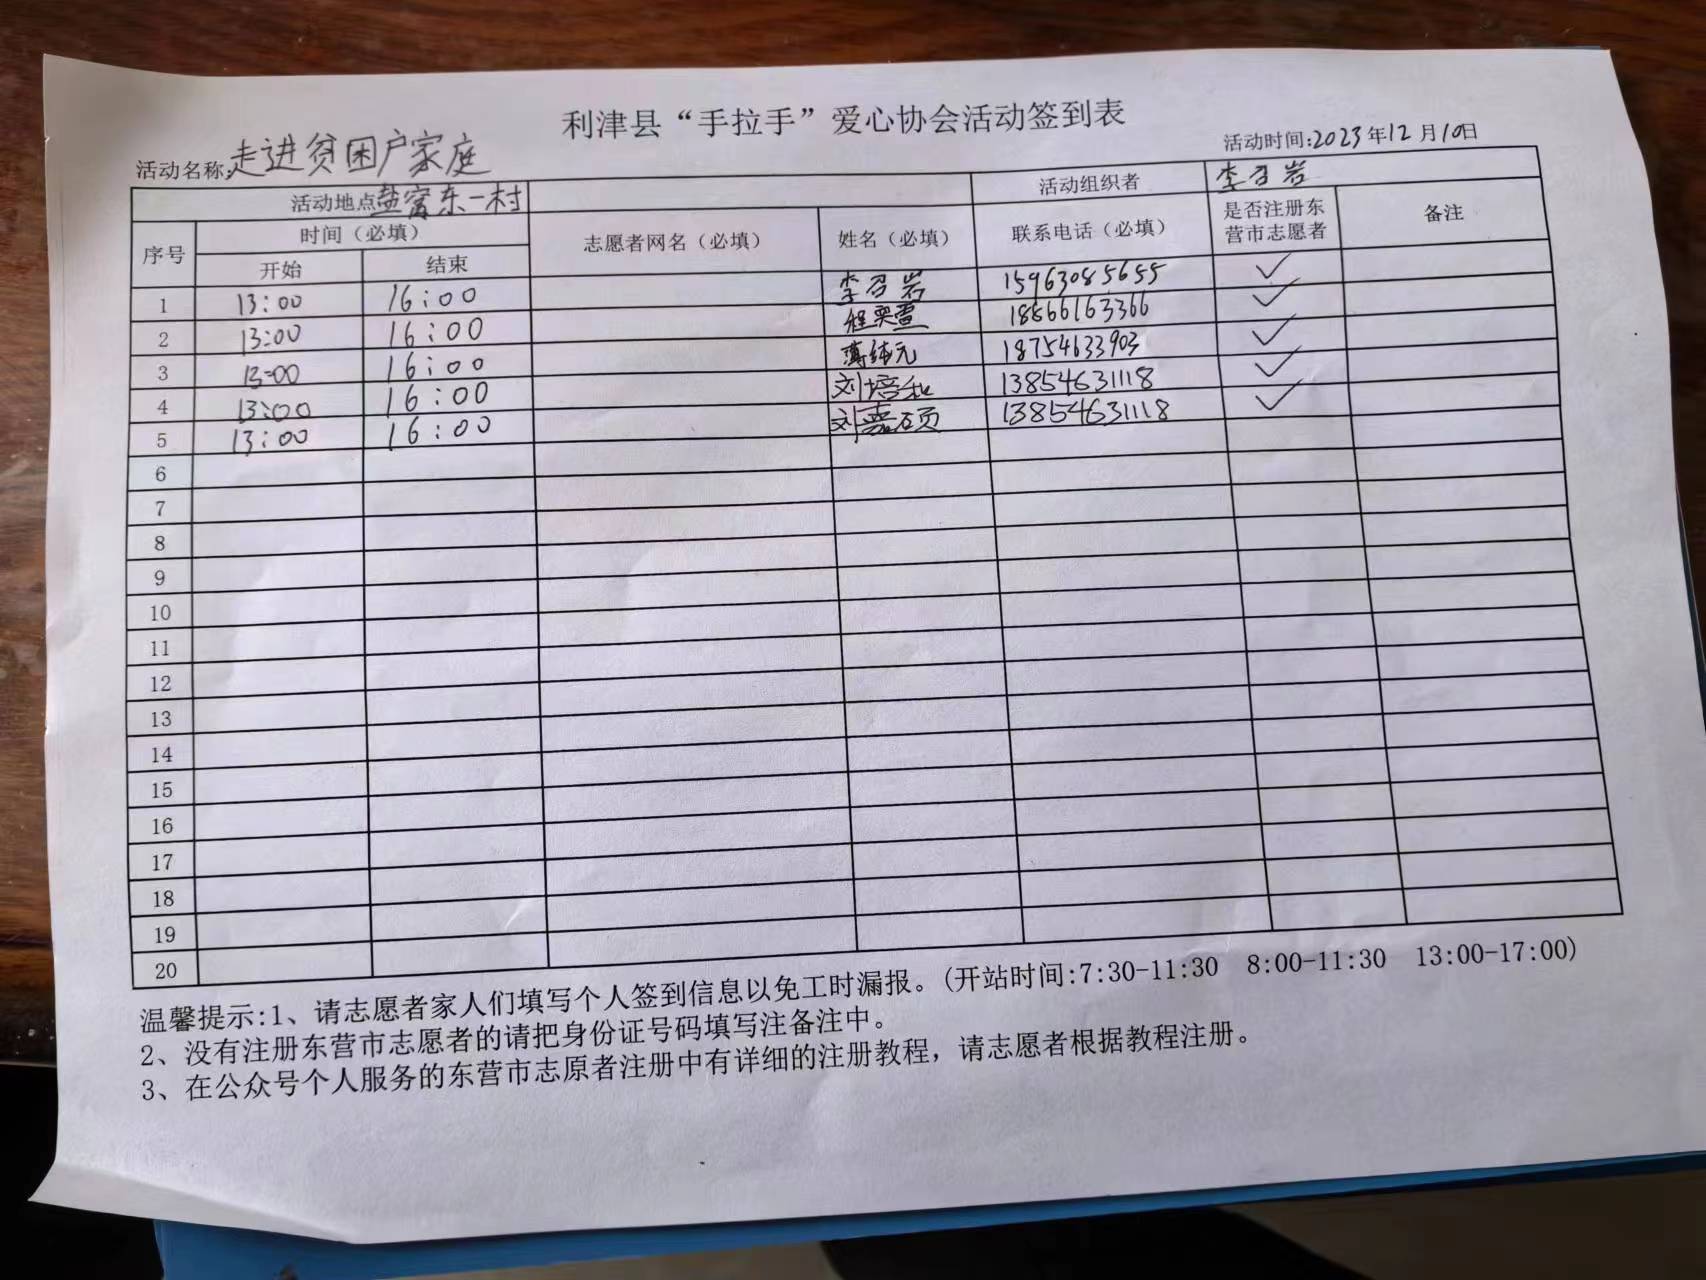 利津县“手拉手”爱心协会活动签到表
活动名称:走进贫困户家庭 活动时间:2023年12月10日
活动地点 盐窝东一村 活动组织者 李召岩
序号 时间（必填） 志愿者网名（必填） 姓名（必填） 联系电话（必填） 是否注册东营市志愿者 备注
开始 结束
1 13:00 16:00 李召岩 15963085655 ✓
2 13:00 16:00 程奕萱 18566163366 ✓
3 13:00 16:00 薄纯元 18754633903 ✓
4 13:00 16:00 刘培和 13854631118 ✓
5 13:00 16:00 刘嘉硕 13854631118 ✓
6
7
8
9
10
11
12
13
14
15
16
17
18
19
20
温馨提示:1、请志愿者家人们填写个人签到信息以免工时漏报。(开站时间:7:30-11:30 8:00-11:30 13:00-17:00)
2、没有注册东营市志愿者的请把身份证号码填写注备注中。
3、在公众号个人服务的东营市志原者注册中有详细的注册教程，请志愿者根据教程注册。